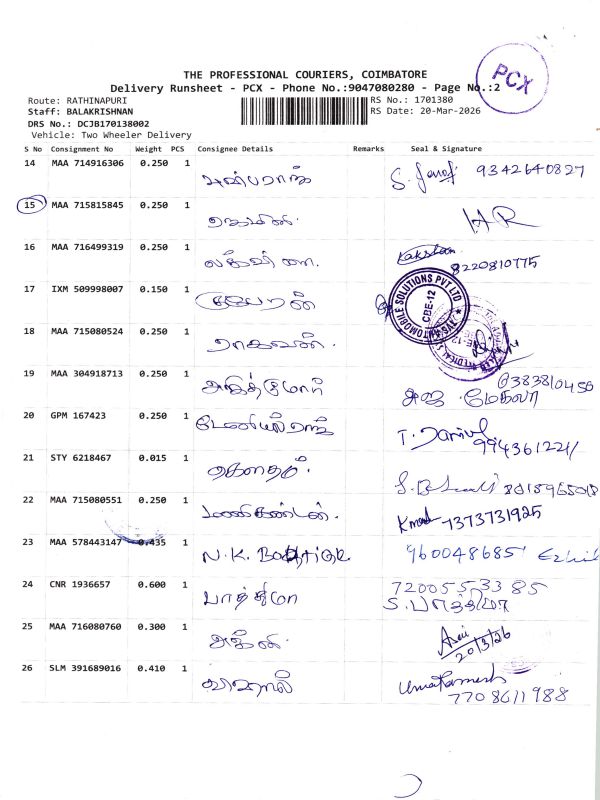 PCX
THE PROFESSIONAL COURIERS, COIMBATORE
Delivery Runsheet - PCX - Phone No.:9047080280 - Page No.:2
Route: RATHINAPURI
Staff: BALAKRISHNAN
DRS No.: DCJ0170138002
Vehicle: Two Wheeler Delivery
RS No.: 1701380
RS Date: 20-Mar-2026
S No Consignment No Weight PCS Consignee Details Remarks Seal & Signature
14 MAA 714916306 0.250 1 அன்பராஜ் 9342640827
15 MAA 715815845 0.250 1 HR
16 MAA 716499319 0.250 1 8220810775
17 IXM 509998007 0.150 1
AUTOMOBILE SOLUTIONS PVT LTD
CBE-12
18 MAA 715080524 0.250 1 ராகவன்.
19 MAA 304918713 0.250 1 அஜித்குமார்
20 GPM 167423 0.250 1 டேனியல்ராஜ் T. Daniel
21 STY 6218467 0.015 1 கௌதம்.
22 MAA 715080551 0.250 1 மணிகண்டன். 7373731925
23 MAA 578443147 0.435 1 N.K. 9600486851
24 CNR 1936657 0.600 1 பாத்திமா 7200553385
S. பாத்திமா
25 MAA 716080760 0.300 1 20/3/26
26 SLM 391689016 0.410 1 விஷால் UmaRamesh
7708611988